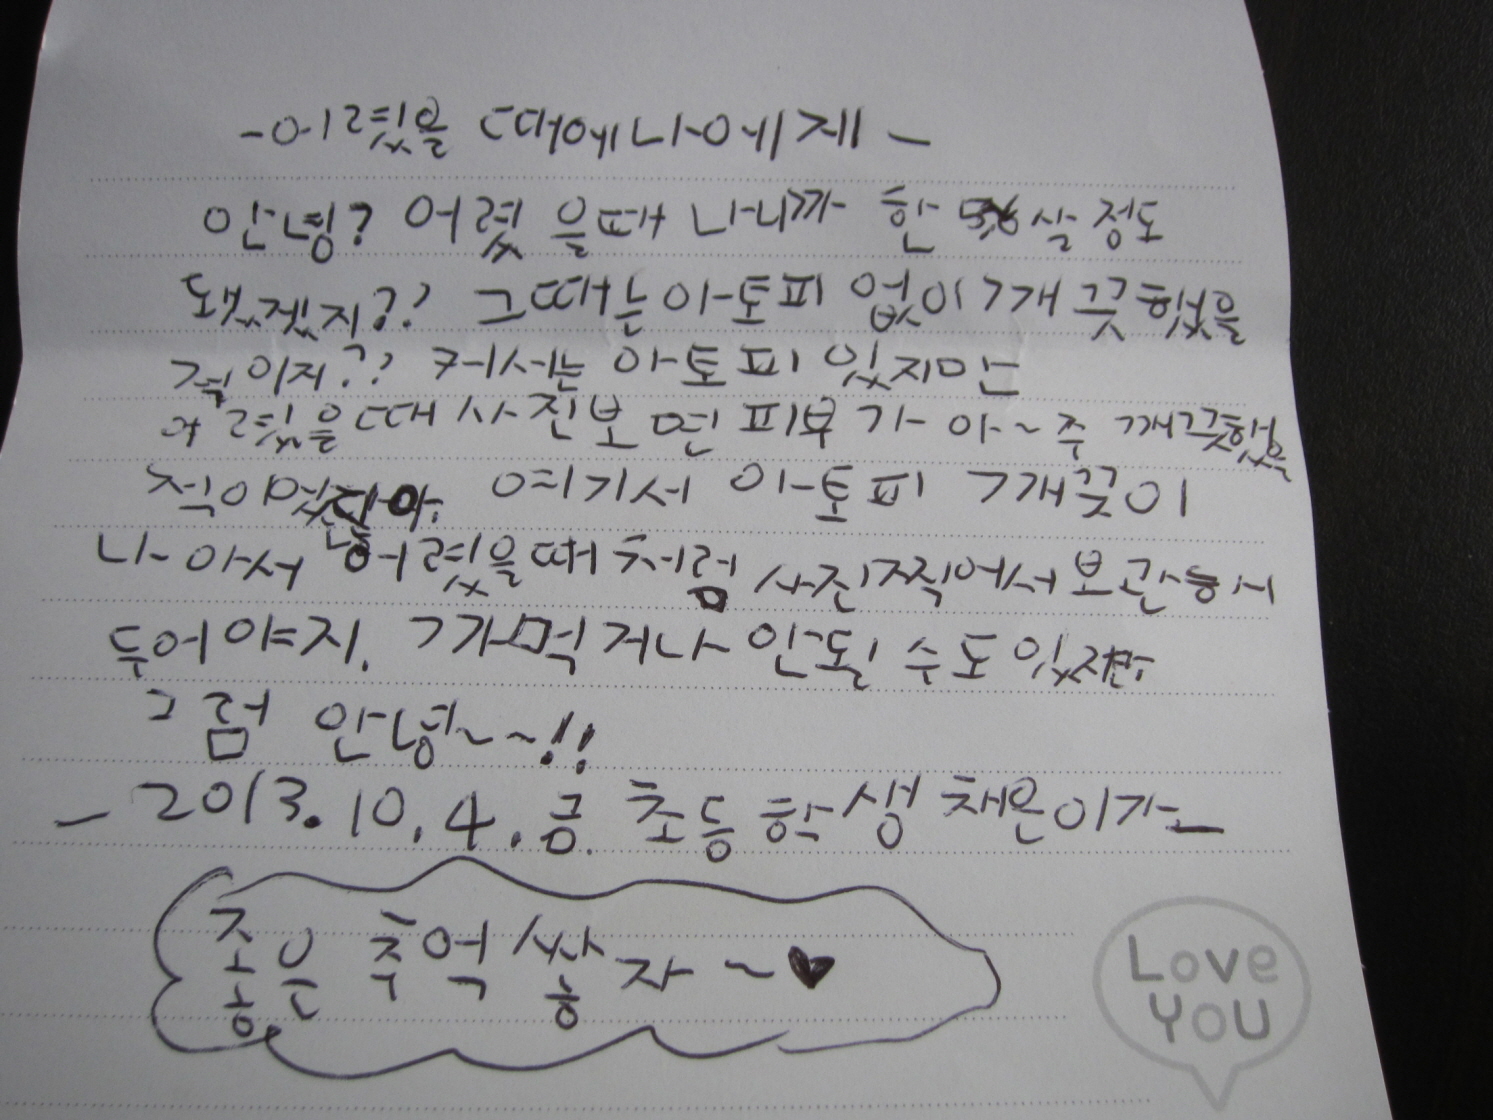 -어렸을 때에 나에게-
안녕? 어렸을때 나니까 한 살 정도
됐겠지?? 그때는 아토피 없이 깨끗했을
적이지?? 커서는 아토피 있지만
어렸을때 사진보면 피부가 아~주 깨끗했을
적이였 여기서 아토피 깨끗이
나아서 어렸을때처럼 사진찍어서 보관
두어야지. 까먹거나 안될 수도 있지만
그럼 안녕~~!!
- 2013. 10. 4. 금. 초등학생 채은이가-
좋은 추억 쌓자~♥
Love
YOU